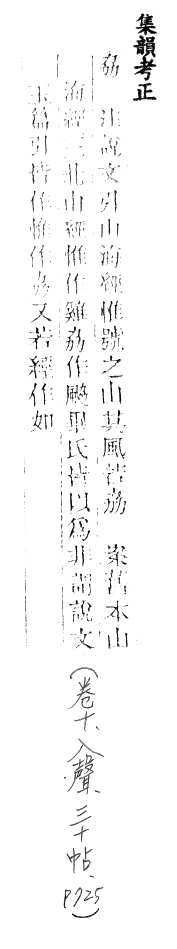 集韻考正
劦 注說文引山海經惟號之山其風若劦 案舊本山
海經三北山經惟作雞劦作䬅畢氏皆以爲非謂說文
玉篇引皆作惟作劦又若經作如
(卷十、入聲、三十帖、p725)